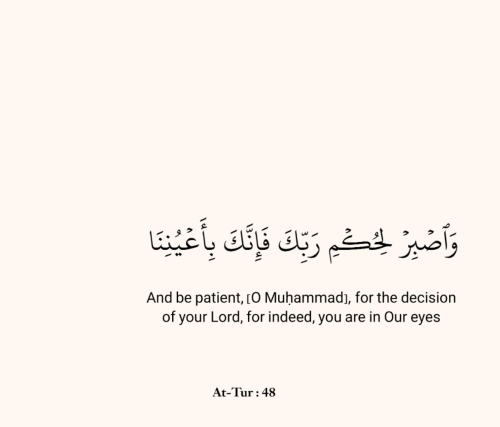 وَٱصۡبِرۡ لِحُكۡمِ رَبِّكَ فَإِنَّكَ بِأَعۡيُنِنَا
And be patient, [O Muḥammad], for the decision
of your Lord, for indeed, you are in Our eyes
At-Tur : 48